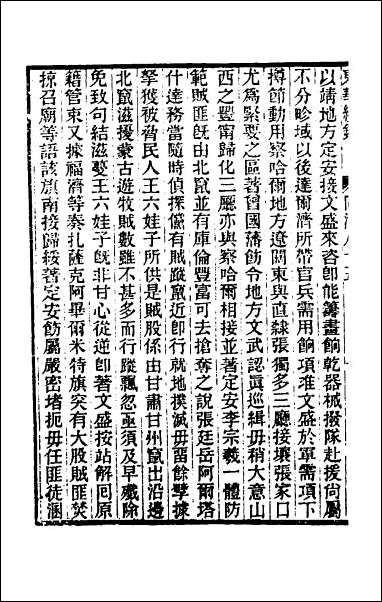 以靖地方定安接文盛來咨即能籌畫餉乾器械撥隊赴援尚屬
不分畛域以後達爾濟所帶官兵需用餉項准文盛於軍需項下
撙節動用察哈爾地方遼闊東與直隸張獨多三廳接壤張家口
尤為緊要之區著曾國藩飭令地方文武認真巡緝毋稍大意山
西之豐甯歸化三廳亦與察哈爾相接並著定安李宗羲一體防
範賊匪旣由北竄並有庫倫豐富可去搶奪之說張廷岳阿爾塔
什達務當隨時偵探儻有賊蹤竄近即行就地撲滅毋留餘孽據
拏獲被脅民人王六娃子所供是賊股係由甘肅甘州竄出沿邊
北竄滋擾蒙古遊牧賊數雖不甚多而行蹤飄忽亟須及早殲除
免致句結滋蔓王六娃子旣非甘心從逆即著文盛按站解回原
籍管束又據福濟等奏扎薩克阿畢爾米特旗突有大股賊匪焚
掠召廟等語該旗南接歸綏著定安飭屬嚴密堵扼毋任匪徒溷